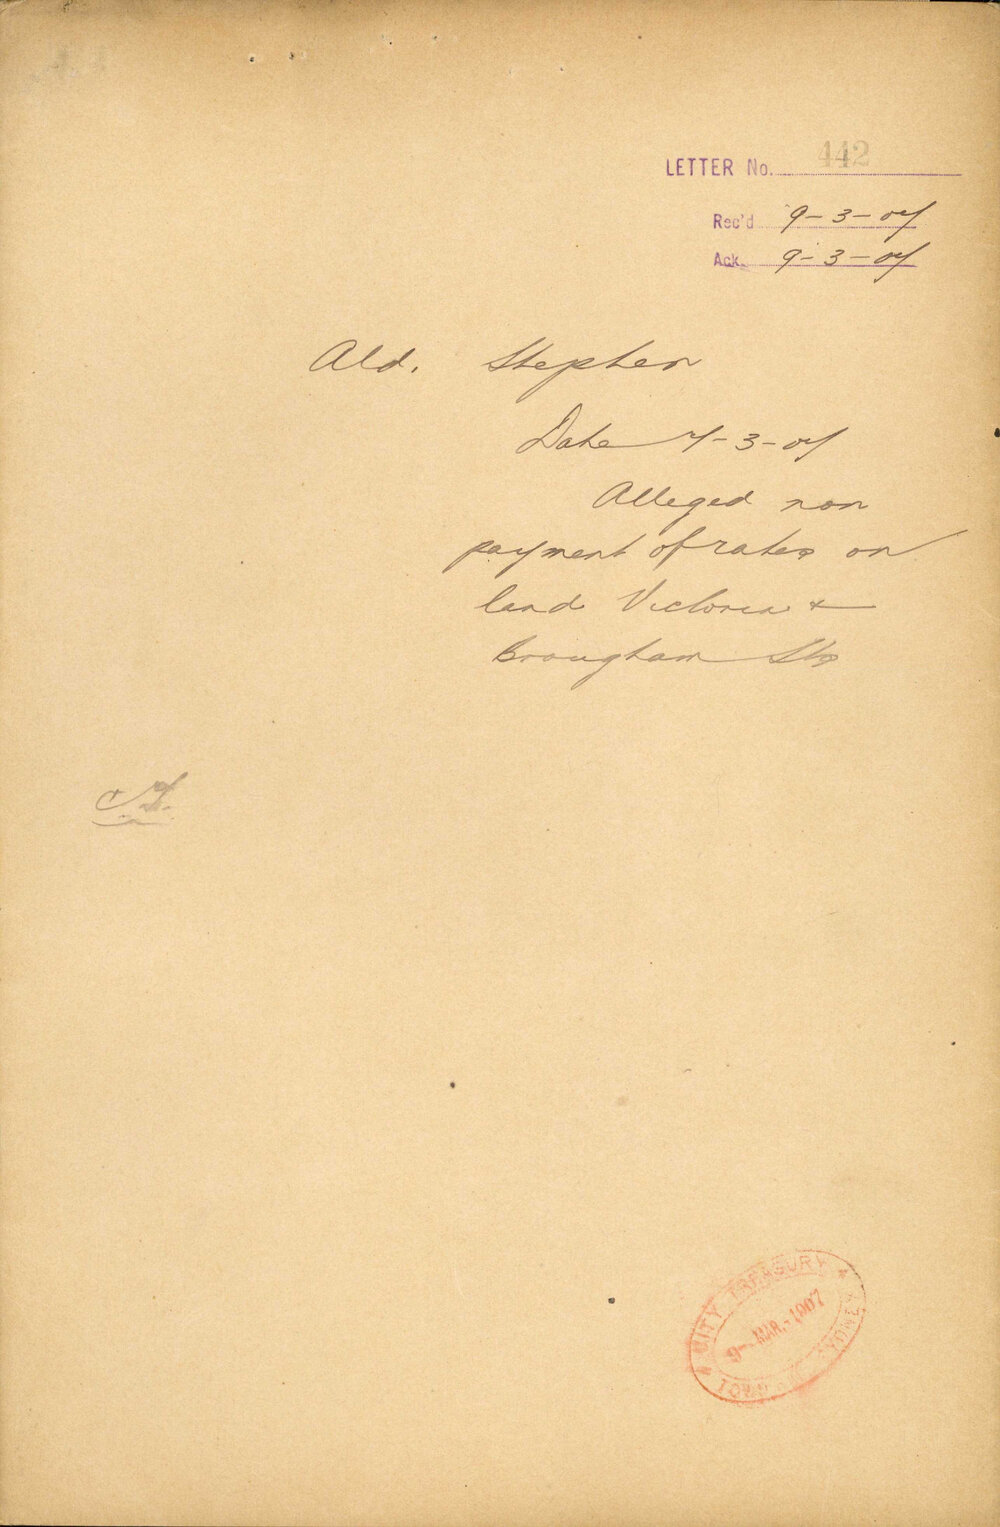 LETTER No. 442
Rec'd 9-3-07
Ack. 9-3-07
Ald. Stephen
Date 7-3-07
Alleged non
payment of rates on
land Victoria +
Brougham Sts
CITY TREASURY
9- MAR.-1907
TOWN SYDNEY